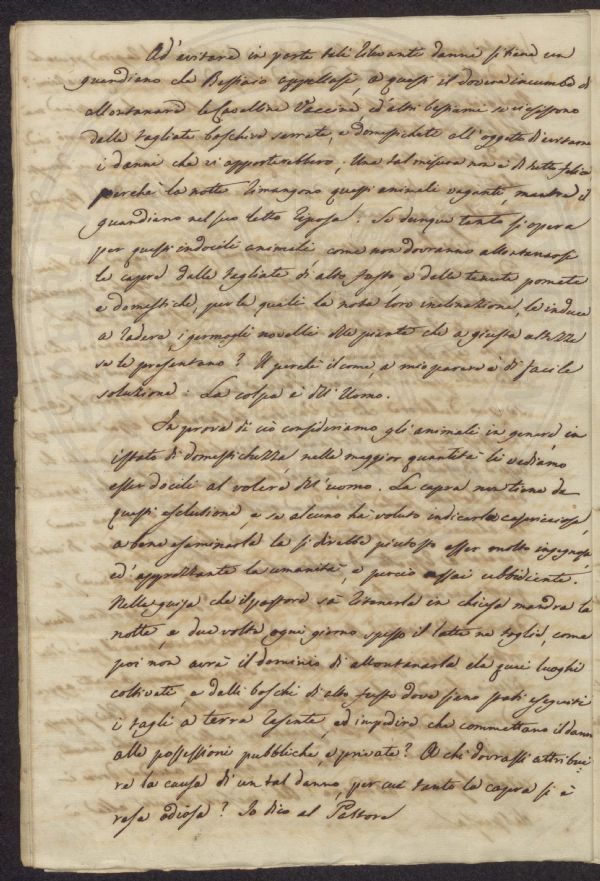 Ad' evitare in parte tali rilevanti danni si tiene un
guardiano che Bessiaro appellasi, e questi il dovere incumbe di
allontanare le Cavalline Vaccine, ed' altri bestiami se vi esistono
dalle tagliate boschive serrate, e domestichete all' oggetto d' evitarne
i danni che vi apporterebbero; Una tal misura non è di tutto felice
perché la notte rimangono questi animali vaganti, mentre il
guardiano nel suo letto riposa. Se dunque tanto si opera
per questi indocili animali, come non dovranno allontanarsi
le capre dalle tagliate di alto fusto, e dalle tenute pomate
e domestiche, per le quali la nota loro inclinazione, le induce
a radere i germogli novelli alle piante che a giusta altezza
se le presentano? Il perché il come, a mio parere è di facile
soluzione: La colpa è dell' Uomo.
In prova di ciò consideriamo gli animali in genere, in
istato di domestichezza, nella maggior quantità li vediamo
esser docili al volere dell' uomo. La capra non tiene da
questi esclusione, e se alcuno hà voluto indicarla capricciosa,
a bene esaminarla la si direbbe piutosto esser molto ingegnosa
ed' approfittante la umanità, e perciò assai ubbidiente.
Nella guisa che il pastore sà tenerla in chiusa mandra la
notte, e due volte ogni giorno spesso il latte ne toglie, come
poi non avrà il dominio di allontanarla da quei luoghi
coltivati, e dalli boschi di alto fusto dove sieno stati eseguiti
i tagli a terra resente, ed impedire che commettano il danno
alle possessioni pubbliche, e private? A chi dovrassi attribui=
re la causa di un tal danno, per cui tanto la capra si è
resa odiosa? Io dico al Pastore